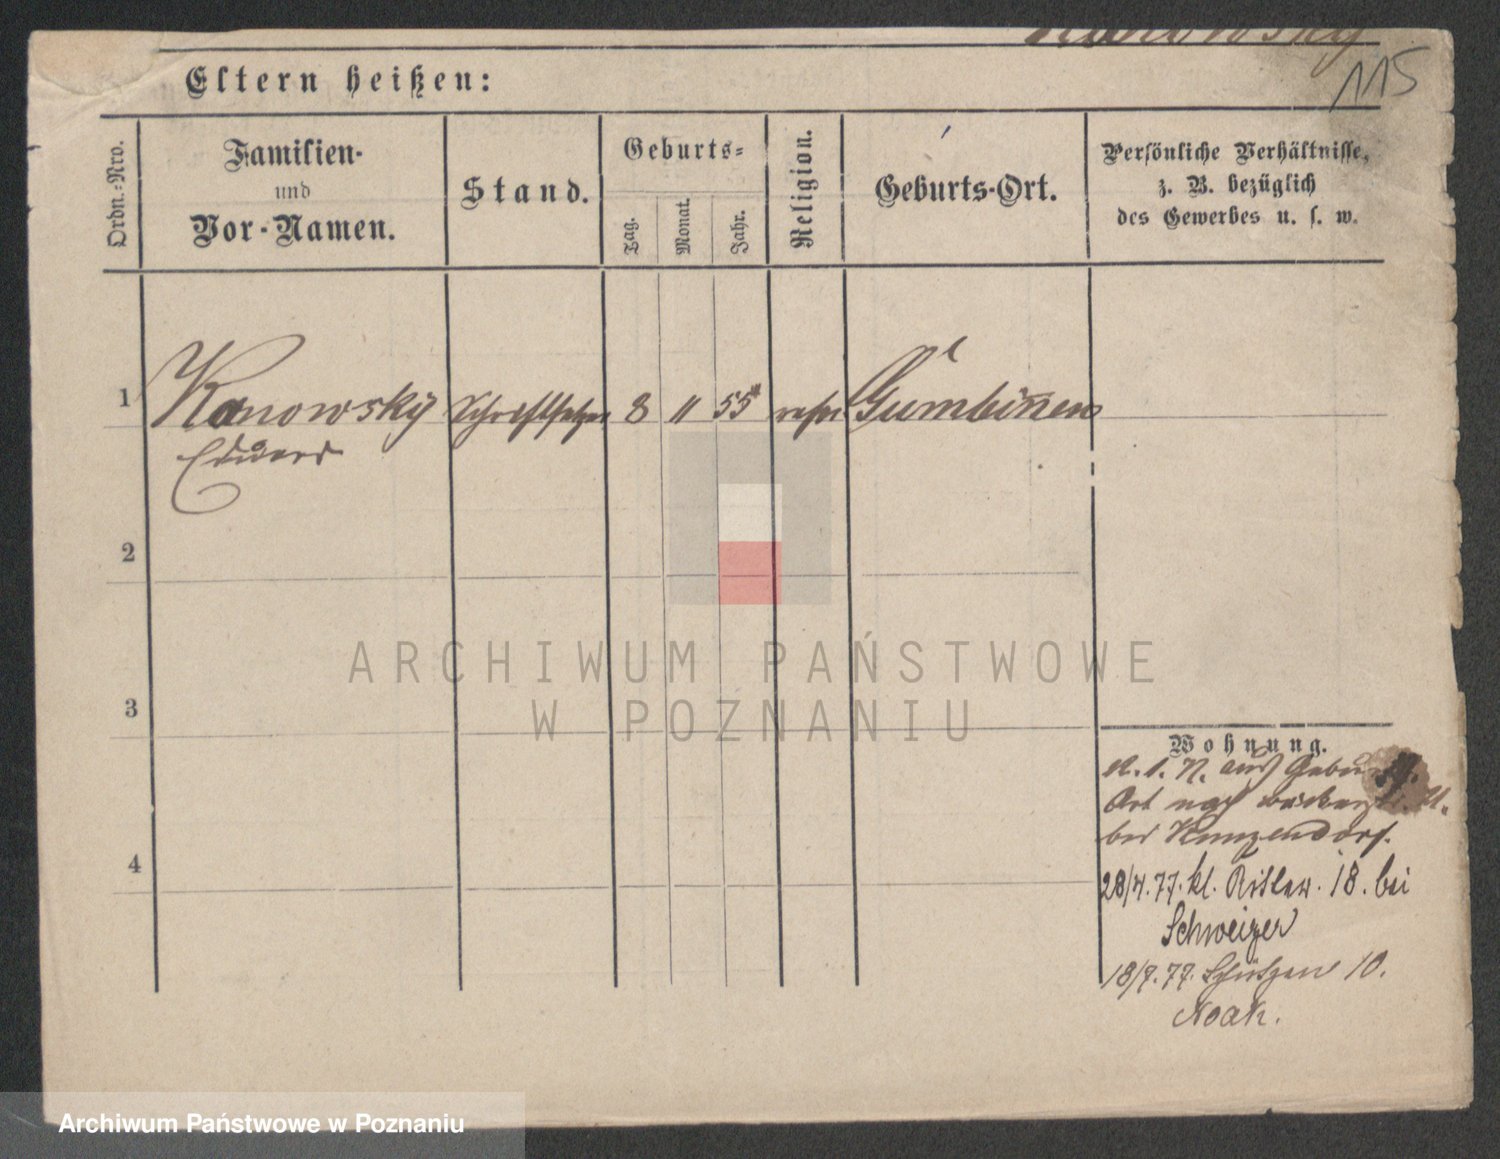 Kanowsky
115
Eltern heißen:
Ordn.-Nro.
Familien-
und
Vor-Namen.
Stand.
Geburts-
Tag.
Monat.
Jahr.
Religion.
Geburts-Ort.
Persönliche Verhältnisse,
z. B. bezüglich
des Gewerbes u. s. w.
1 Kanowsky Schriftsetzer 8 11 55 Gumbinnen
Eduard
2
3
4
Wohnung.
bei Kunzendorf.
28/4.77. kl. Ritter. 18. bei
Schweizer
18/9.77. Schützen 10.
Noak.
ARCHIWUM PAŃSTWOWE
W POZNANIU
Archiwum Państwowe w Poznaniu